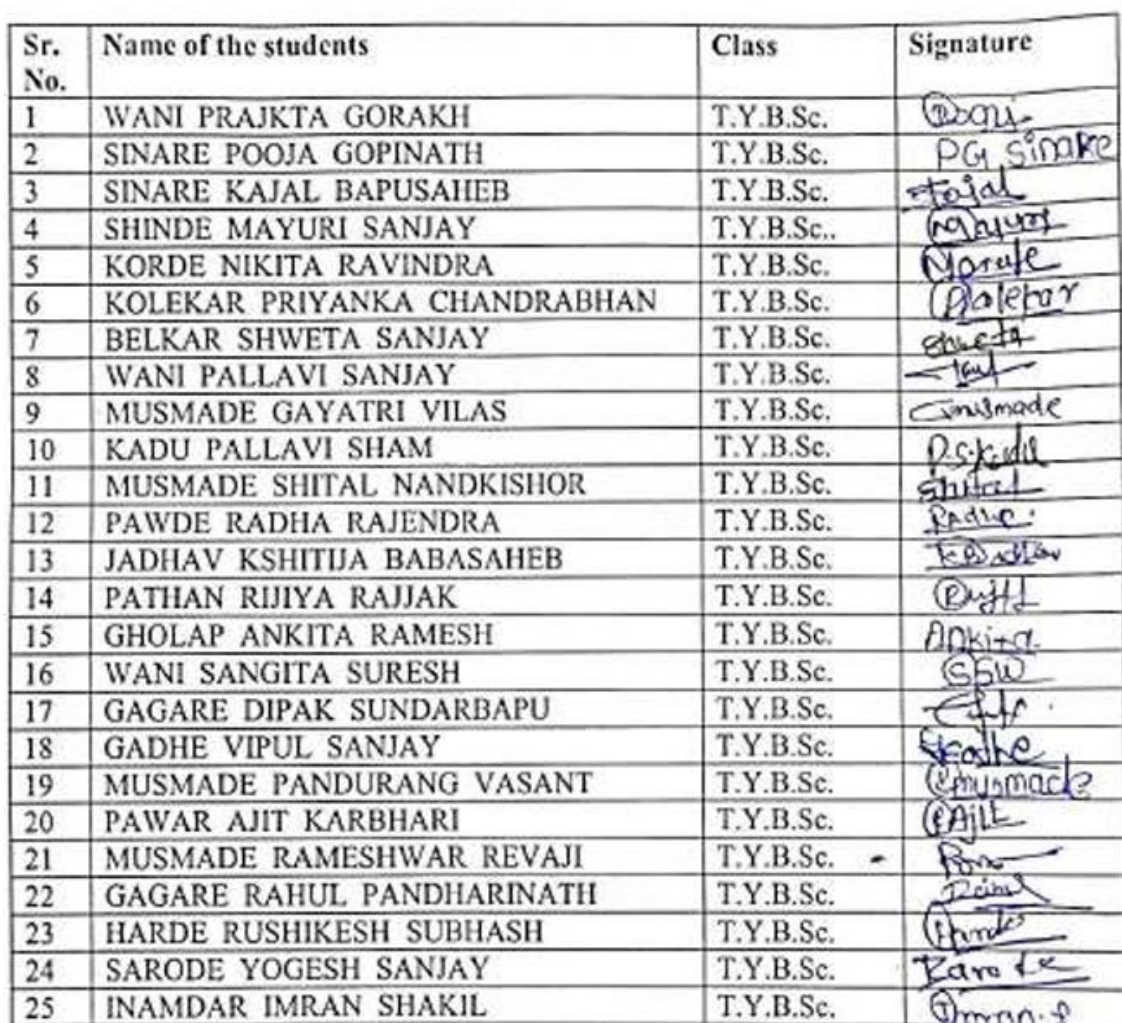 Sr. No. Name of the students Class Signature
1 WANI PRAJKTA GORAKH T.Y.B.Sc.
2 SINARE POOJA GOPINATH T.Y.B.Sc. PG Sinare
3 SINARE KAJAL BAPUSAHEB T.Y.B.Sc. Kajal
4 SHINDE MAYURI SANJAY T.Y.B.Sc.. Mayuri
5 KORDE NIKITA RAVINDRA T.Y.B.Sc.
6 KOLEKAR PRIYANKA CHANDRABHAN T.Y.B.Sc.
7 BELKAR SHWETA SANJAY T.Y.B.Sc. Shweta
8 WANI PALLAVI SANJAY T.Y.B.Sc.
9 MUSMADE GAYATRI VILAS T.Y.B.Sc. Gmusmade
10 KADU PALLAVI SHAM T.Y.B.Sc. P.S.Kadu
11 MUSMADE SHITAL NANDKISHOR T.Y.B.Sc. Shital
12 PAWDE RADHA RAJENDRA T.Y.B.Sc.
13 JADHAV KSHITIJA BABASAHEB T.Y.B.Sc.
14 PATHAN RIJIYA RAJJAK T.Y.B.Sc.
15 GHOLAP ANKITA RAMESH T.Y.B.Sc. Ankita
16 WANI SANGITA SURESH T.Y.B.Sc. SSW
17 GAGARE DIPAK SUNDARBAPU T.Y.B.Sc.
18 GADHE VIPUL SANJAY T.Y.B.Sc.
19 MUSMADE PANDURANG VASANT T.Y.B.Sc. Pmusmade
20 PAWAR AJIT KARBHARI T.Y.B.Sc. PAjit
21 MUSMADE RAMESHWAR REVAJI T.Y.B.Sc.
22 GAGARE RAHUL PANDHARINATH T.Y.B.Sc.
23 HARDE RUSHIKESH SUBHASH T.Y.B.Sc. Harde
24 SARODE YOGESH SANJAY T.Y.B.Sc.
25 INAMDAR IMRAN SHAKIL T.Y.B.Sc. Imran.s